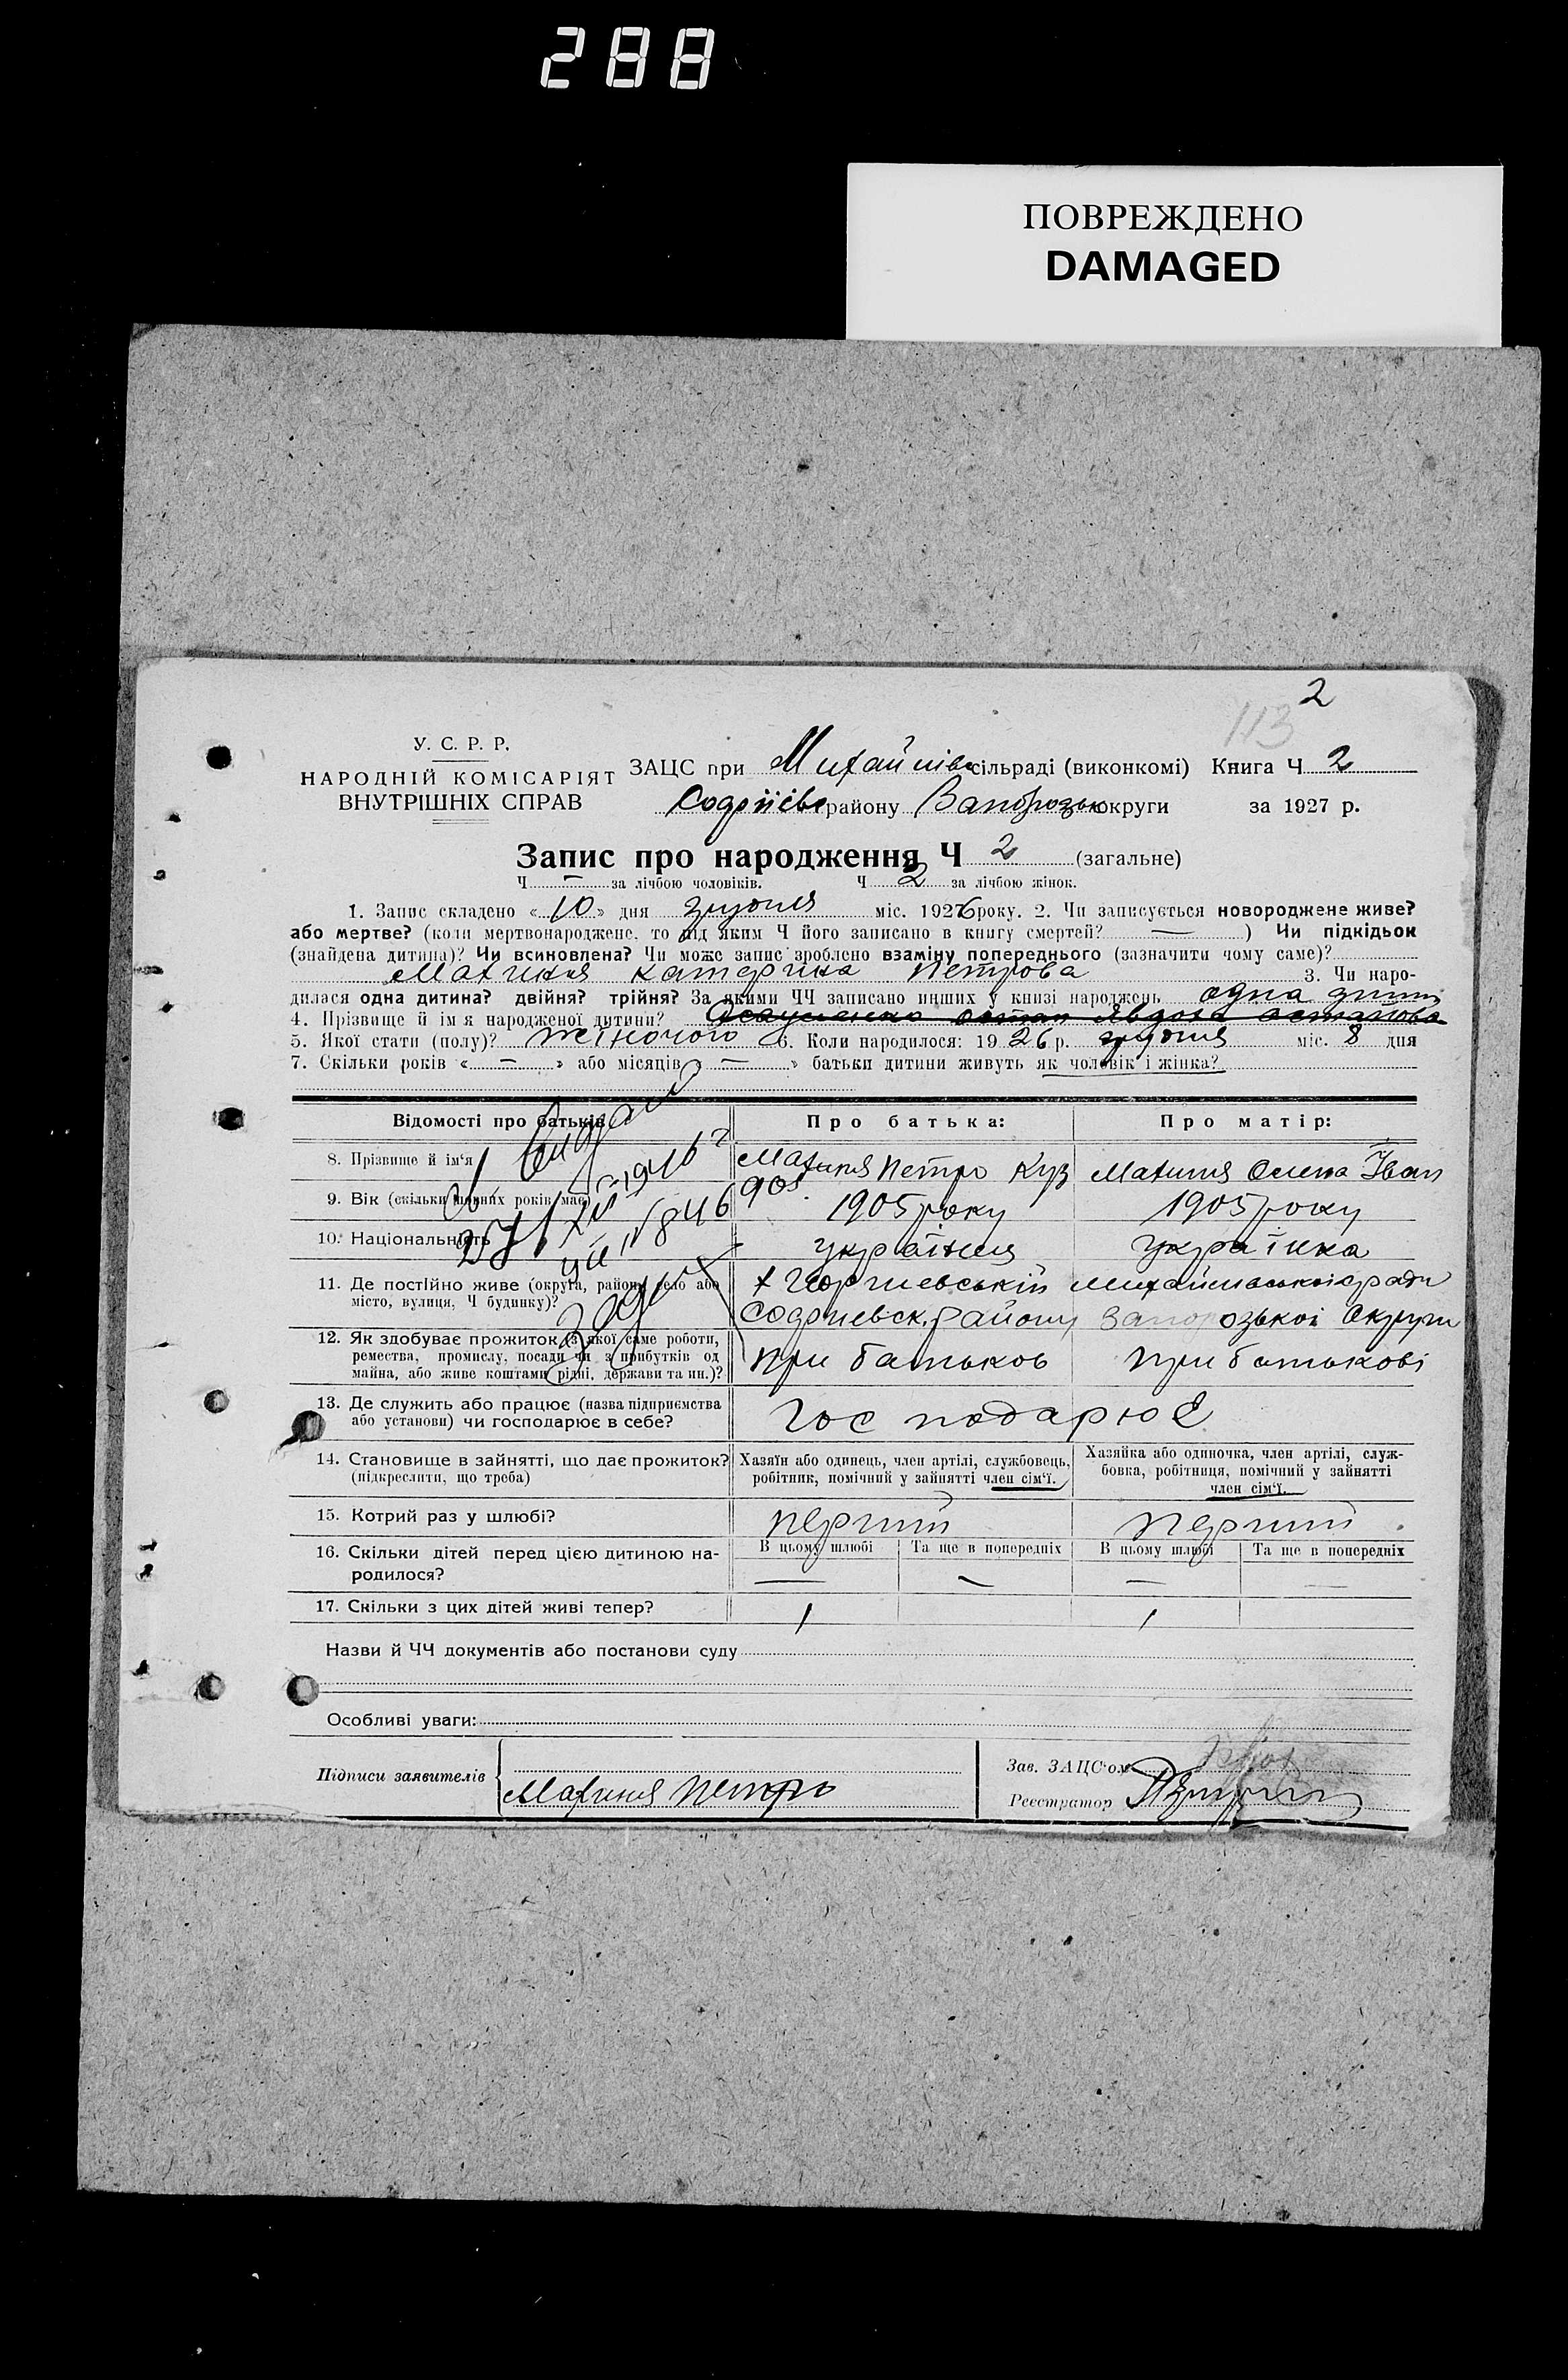 288
ПОВРЕЖДЕНО
DAMAGED
2
113
У. С. Р. Р.
НАРОДНІЙ КОМІСАРІЯТ
ВНУТРІШНІХ СПРАВ
ЗАЦС при Михайлівс сільраді (виконкомі) Книга Ч 2
Софіївс району Запорозьк округи за 1927 р.
Запис про народження Ч 2 (загальне)
Ч — за лічбою чоловіків. Ч 2 за лічбою жінок.
1. Запис складено «10» дня грудня міс. 1926 року. 2. Чи записується новороджене живе?
або мертве? (коли мертвонароджене, то під яким Ч його записано в книгу смертей? — ) Чи підкідьок
(знайдена дитина)? Чи всиновлена? Чи може запис зроблено взаміну попереднього (зазначити чому саме)?
Махиня Катерина Петрова 3. Чи наро-
дилася одна дитина? двійня? трійня? За якими ЧЧ записано инших у книзі народжень одна дитин
4. Прізвище й ім'я народженої дитини? остап Явдоха астапова
5. Якої стати (полу)? жіночого 6. Коли народилося: 1926 р. грудня міс. 8 дня
7. Скільки років « — » або місяців « — » батьки дитини живуть як чоловік і жінка?
Відомості про батьків
Про батька:
Про матір:
8. Прізвище й ім'я Махиня Петро Куз Махиня Олена Іван
9. Вік (скільки повних років має) 905. 1905 року 1905 року
10. Національність українця українка
11. Де постійно живе (округа, район, село або х Георгиевській Михайливськоі ради
місто, вулиця, Ч будинку)? Софиевск. району Запорозькоі Округи
12. Як здобуває прожиток (з якої саме роботи,
ремества, промислу, посади чи з прибутків од при батьков при батькові
майна, або живе коштами рідні, держави та ин.)?
13. Де служить або працює (назва підприємства
або установи) чи господарює в себе? Господарює
14. Становище в зайнятті, що дає прожиток? Хазяїн або одинець, член артілі, службовець, Хазяйка або одиночка, член артілі, служ-
(підкреслити, що треба) робітник, помічний у зайнятті член сім'ї. бовка, робітниця, помічний у зайнятті
член сім'ї.
15. Котрий раз у шлюбі? перший перший
16. Скільки дітей перед цією дитиною на- В цьому шлюбі Та ще в попередніх В цьому шлюбі Та ще в попередніх
родилося? — — — —
17. Скільки з цих дітей живі тепер? 1 1
Назви й ЧЧ документів або постанови суду
Особливі уваги:
Підписи заявителів Махиня Петро
Зав. ЗАЦС'ом
Реєстратор